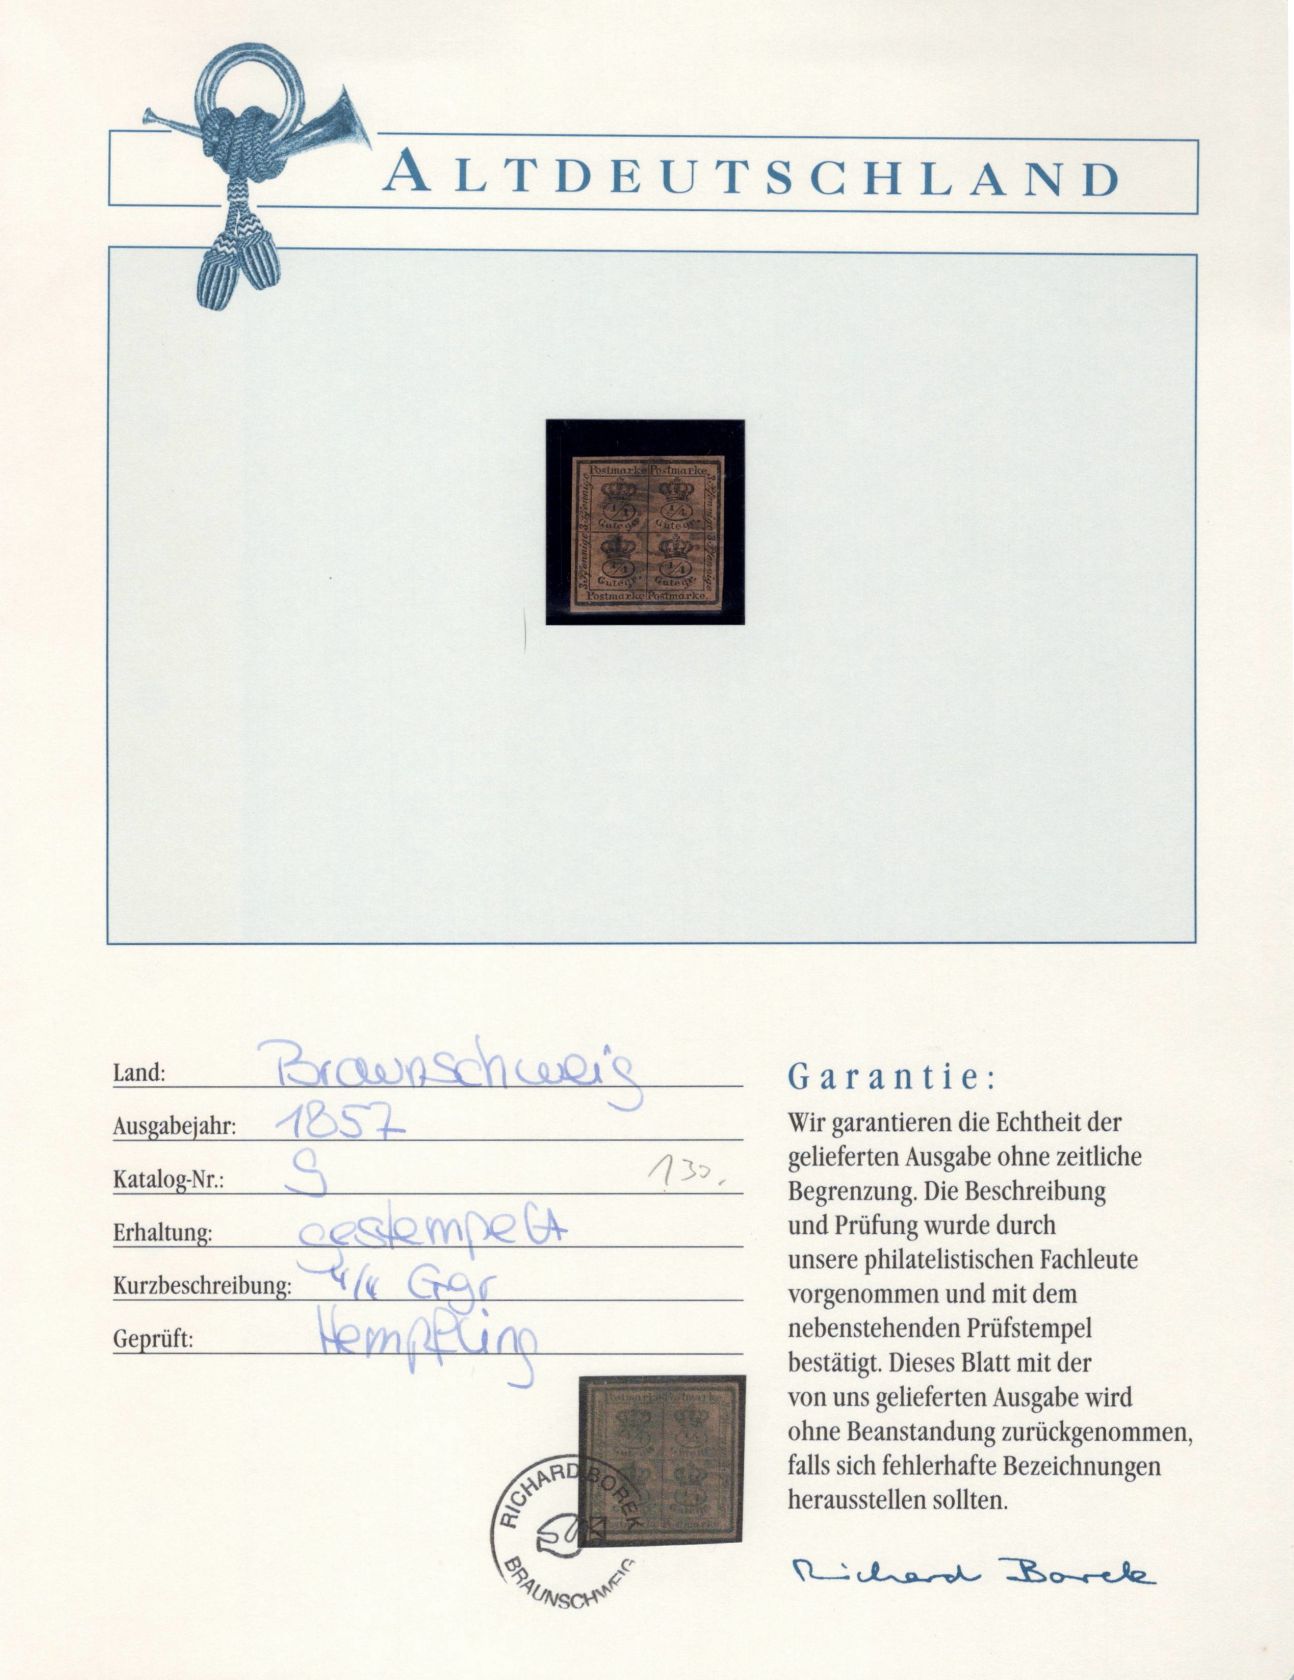 ALTDEUTSCHLAND
Postmarke Postmarke.
3 Pfennige 3 Pfennige
3 Pfennige 3 Pfennige
1/4 1/4
Gutegr. Gutegr.
1/4 1/4
Gutegr. Gutegr.
Postmarke Postmarke.
Land: Braunschweig
Ausgabejahr: 1857
Katalog-Nr.: 9 130,
Erhaltung: gestempelt
Kurzbeschreibung: 4/4 Ggr
Geprüft: Hempfling
RICHARD BOREK
BRAUNSCHWEIG
Garantie:
Wir garantieren die Echtheit der
gelieferten Ausgabe ohne zeitliche
Begrenzung. Die Beschreibung
und Prüfung wurde durch
unsere philatelistischen Fachleute
vorgenommen und mit dem
nebenstehenden Prüfstempel
bestätigt. Dieses Blatt mit der
von uns gelieferten Ausgabe wird
ohne Beanstandung zurückgenommen,
falls sich fehlerhafte Bezeichnungen
herausstellen sollten.
Richard Borek